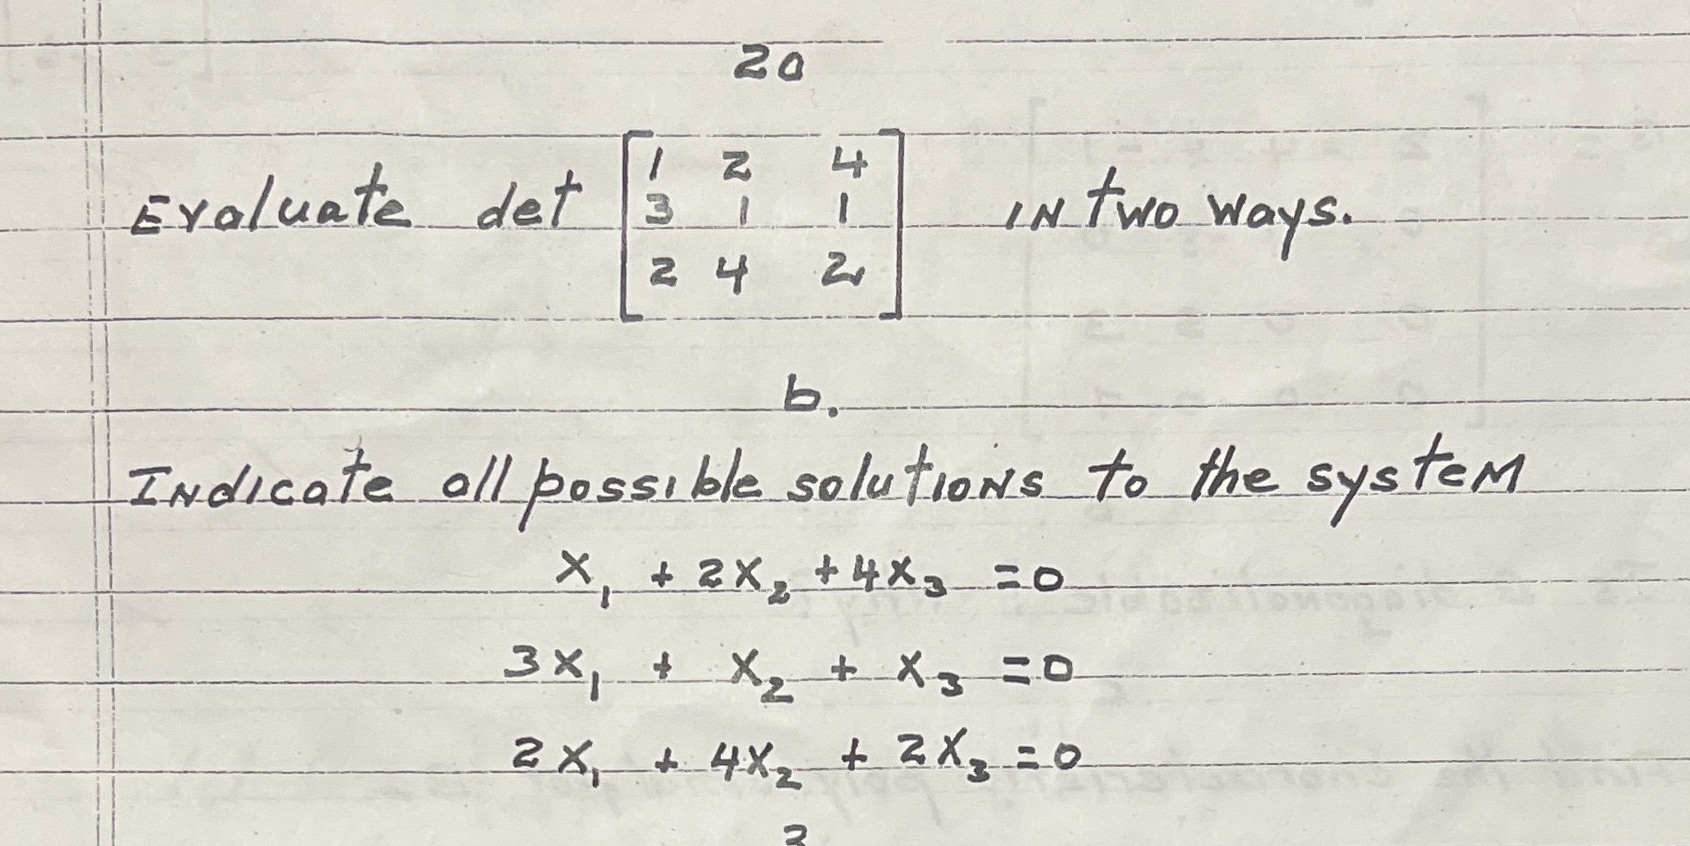 2a
Evaluate det [1 2 4
3 1 1
2 4 2] in two ways.
b.
Indicate all possible solutions to the system
x₁ + 2x₂ + 4x₃ = 0
3x₁ + x₂ + x₃ = 0
2x₁ + 4x₂ + 2x₃ = 0